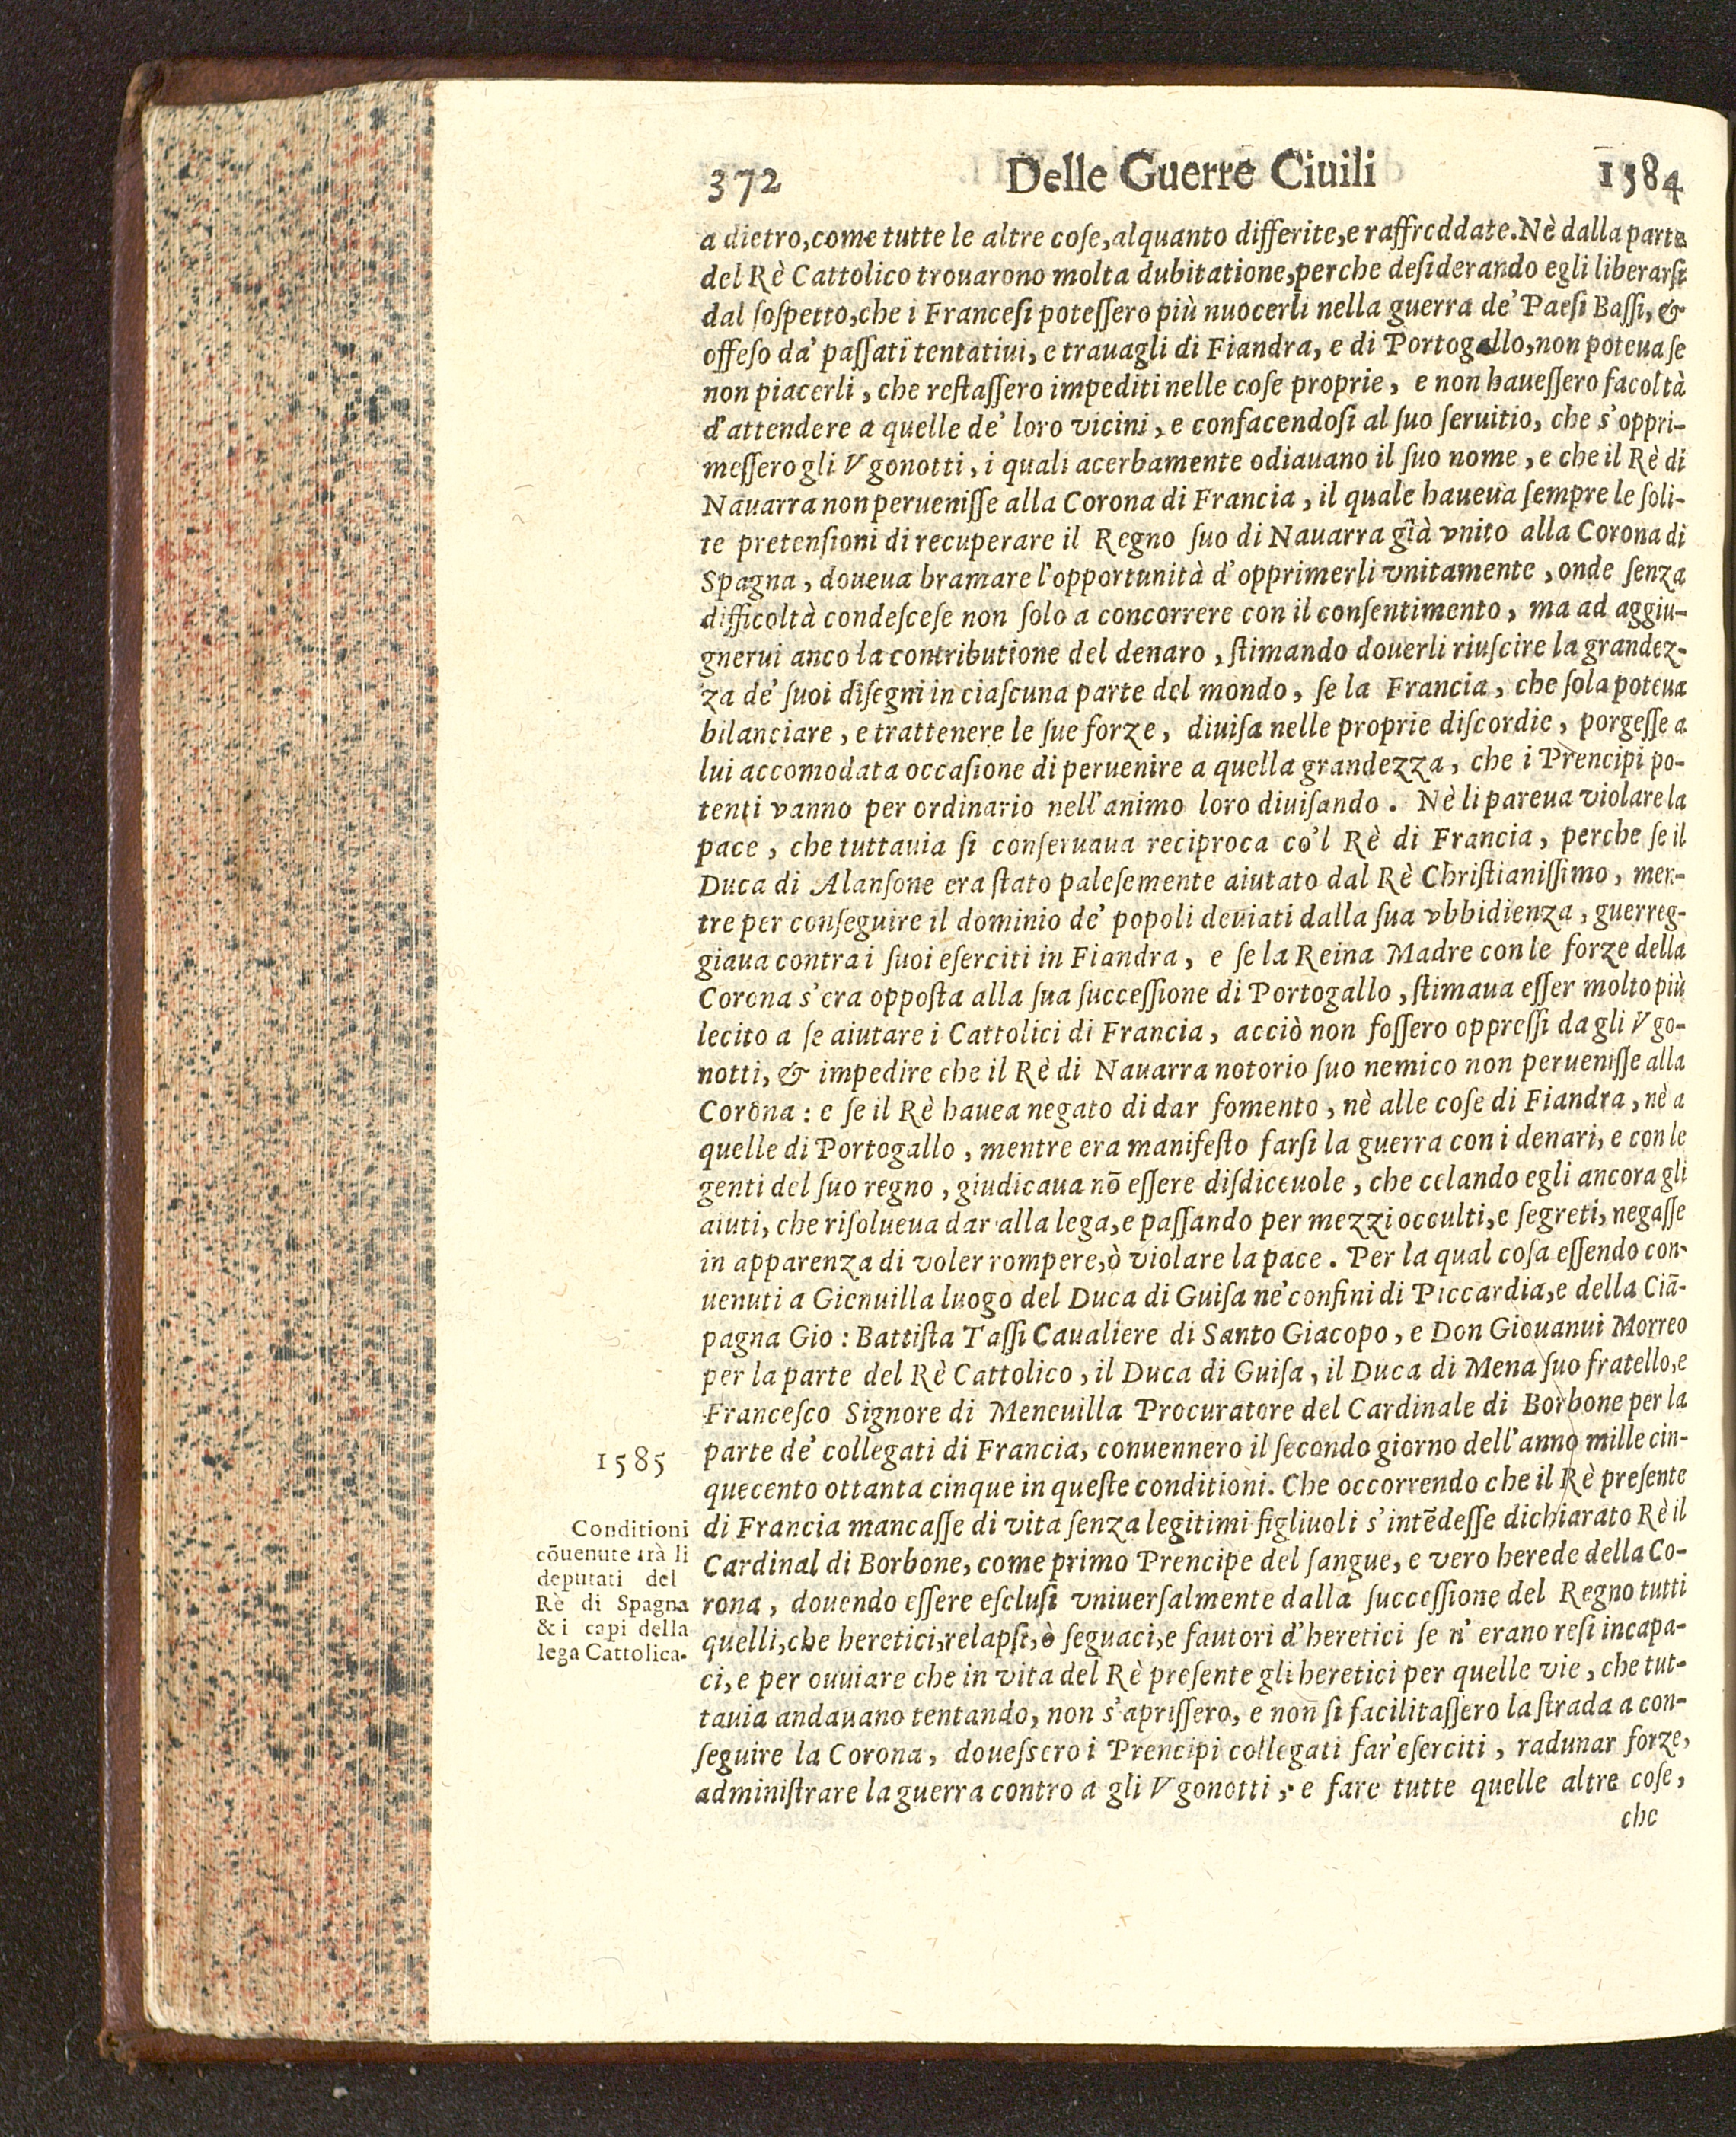 372 Delle Guerre Ciuili 1584
a dietro, come tutte le altre coſe, alquanto differite, e raffreddate. Nè dalla parte
del Rè Cattolico trouarono molta dubitatione, perche deſiderando egli liberarſi
dal ſoſpetto, che i Franceſi poteſſero più nuocerli nella guerra de' Paeſi Baſſi, &
offeſo da' paſſati tentatiui, e trauagli di Fiandra, e di Portogallo, non poteua ſe
non piacerli, che reſtaſſero impediti nelle coſe proprie, e non haueſſero facoltà
d'attendere a quelle de' loro vicini, e confacendoſi al ſuo ſeruitio, che s'oppri-
meſſero gli Vgonotti, i quali acerbamente odiauano il ſuo nome, e che il Rè di
Nauarra non perueniſſe alla Corona di Francia, il quale haueua ſempre le ſoli-
te pretenſioni di recuperare il Regno ſuo di Nauarra già vnito alla Corona di
Spagna, doueua bramare l'opportunità d'opprimerli vnitamente, onde ſenza
difficoltà condeſceſe non ſolo a concorrere con il conſentimento, ma ad aggiu-
gnerui anco la contributione del denaro, ſtimando douerli riuſcire la grandez-
za de' ſuoi diſegni in ciaſcuna parte del mondo, ſe la Francia, che ſola poteua
bilanciare, e trattenere le ſue forze, diuiſa nelle proprie diſcordie, porgeſſe a
lui accomodata occaſione di peruenire a quella grandezza, che i Prencipi po-
tenti vanno per ordinario nell'animo loro diuiſando. Nè li pareua violare la
pace, che tuttauia ſi conſeruaua reciproca co'l Rè di Francia, perche ſe il
Duca di Alanſone era ſtato paleſemente aiutato dal Rè Chriſtianiſſimo, men-
tre per conſeguire il dominio de' popoli deuiati dalla ſua vbbidienza, guerreg-
giaua contra i ſuoi eſerciti in Fiandra, e ſe la Reina Madre con le forze della
Corona s'era oppoſta alla ſua ſucceſſione di Portogallo, ſtimaua eſſer molto più
lecito a ſe aiutare i Cattolici di Francia, acciò non foſſero oppreſſi da gli Vgo-
notti, & impedire che il Rè di Nauarra notorio ſuo nemico non perueniſſe alla
Corona: e ſe il Rè hauea negato di dar fomento, nè alle coſe di Fiandra, nè a
quelle di Portogallo, mentre era manifeſto farſi la guerra con i denari, e con le
genti del ſuo regno, giudicaua nō eſſere diſdiceuole, che celando egli ancora gli
aiuti, che riſolueua dar alla lega, e paſſando per mezzi occulti, e ſegreti, negaſſe
in apparenza di voler rompere, ò violare la pace. Per la qual coſa eſſendo con-
uenuti a Gienuilla luogo del Duca di Guiſa ne' confini di Piccardia, e della Ciā-
pagna Gio: Battiſta Taſſi Caualiere di Santo Giacopo, e Don Giouanui Morreo
per la parte del Rè Cattolico, il Duca di Guiſa, il Duca di Mena ſuo fratello, e
Franceſco Signore di Meneuilla Procuratore del Cardinale di Borbone per la
parte de' collegati di Francia, conuennero il ſecondo giorno dell'anno mille cin-
quecento ottanta cinque in queſte conditioni. Che occorrendo che il Rè preſente
di Francia mancaſſe di vita ſenza legitimi figliuoli s'intēdeſſe dichiarato Rè il
Cardinal di Borbone, come primo Prencipe del ſangue, e vero herede della Co-
rona, douendo eſſere eſcluſi vniuerſalmente dalla ſucceſſione del Regno tutti
quelli, che heretici, relapſi, ò ſeguaci, e fautori d'heretici ſe n'erano reſi incapa-
ci, e per ouuiare che in vita del Rè preſente gli heretici per quelle vie, che tut-
tauia andauano tentando, non s'apriſſero, e non ſi facilitaſſero la ſtrada a con-
ſeguire la Corona, doueſsero i Prencipi collegati far'eſerciti, radunar forze,
adminiſtrare la guerra contro a gli Vgonotti, e fare tutte quelle altre coſe,
che
1585
Conditioni
cōuenute trà li
deputati del
Rè di Spagna
& i capi della
lega Cattolica.